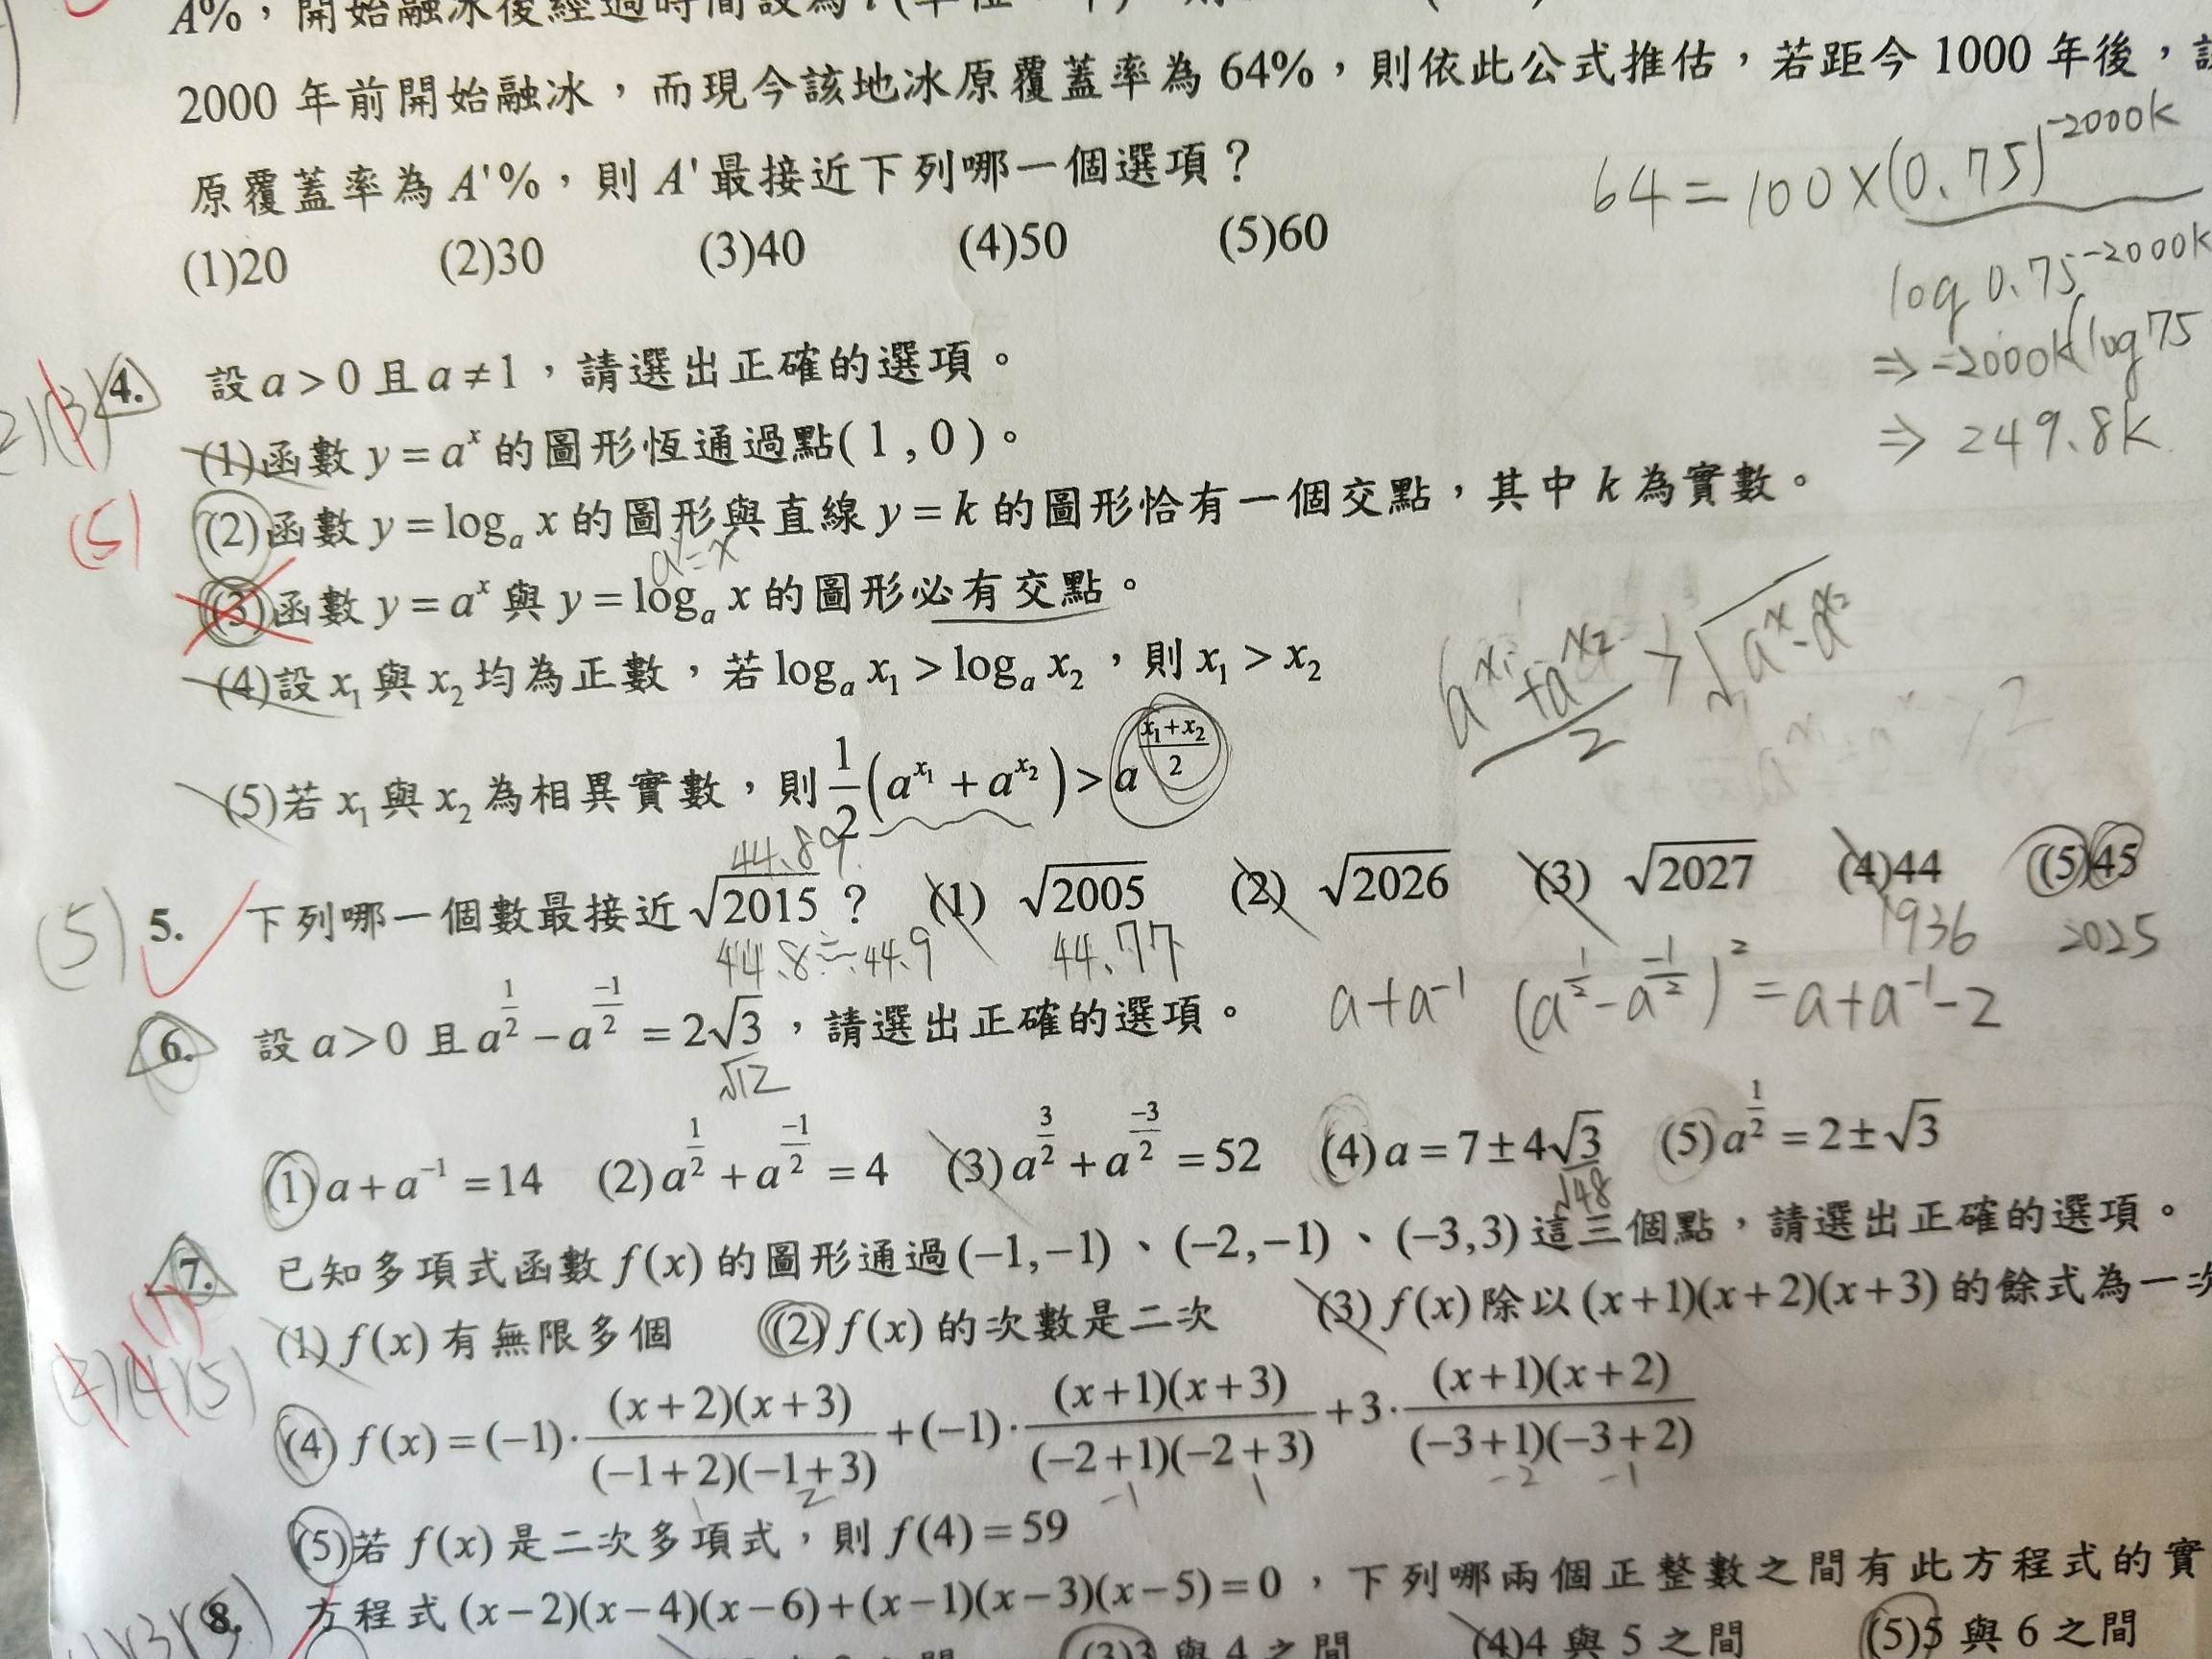 A%，開始融冰後經過時間設為
2000 年前開始融冰，而現今該地冰原覆蓋率為 64%，則依此公式推估，若距今 1000 年後，該
原覆蓋率為 A'%，則 A' 最接近下列哪一個選項？
64 = 100 × (0.75)^{-2000k}
(1)20 (2)30 (3)40 (4)50 (5)60
log 0.75^{-2000k}
⇒ -2000k(log 75
⇒ 249.8k
4. 設 a > 0 且 a ≠ 1，請選出正確的選項。
(1)函數 y = a^x 的圖形恆通過點(1 , 0)。
(5)
(2)函數 y = log_a x 的圖形與直線 y = k 的圖形恰有一個交點，其中 k 為實數。
(3)函數 y = a^x 與 y = log_a x 的圖形必有交點。
(4)設 x_1 與 x_2 均為正數，若 log_a x_1 > log_a x_2，則 x_1 > x_2
(5)若 x_1 與 x_2 為相異實數，則 \frac{1}{2}(a^{x_1} + a^{x_2}) > a^{\frac{x_1+x_2}{2}}
44.89
(5) 5. 下列哪一個數最接近 √2015？ (1) √2005 (2) √2026 (3) √2027 (4)44 (5)45
44.8 ~ 44.9 44.77 1936 2025
a+a^{-1} (a^{\frac{1}{2}} - a^{\frac{-1}{2}})^2 = a+a^{-1}-2
6. 設 a > 0 且 a^{\frac{1}{2}} - a^{\frac{-1}{2}} = 2√3，請選出正確的選項。
√12
(1) a + a^{-1} = 14 (2) a^{\frac{1}{2}} + a^{\frac{-1}{2}} = 4 (3) a^{\frac{3}{2}} + a^{\frac{-3}{2}} = 52 (4) a = 7 ± 4√3 (5) a^{\frac{1}{2}} = 2 ± √3
√48
7. 已知多項式函數 f(x) 的圖形通過 (−1,−1)、(−2,−1)、(−3,3) 這三個點，請選出正確的選項。
(1) f(x) 有無限多個 (2) f(x) 的次數是二次 (3) f(x) 除以 (x+1)(x+2)(x+3) 的餘式為一次
(4) f(x) = (−1)·\frac{(x+2)(x+3)}{(−1+2)(−1+3)} + (−1)·\frac{(x+1)(x+3)}{(−2+1)(−2+3)} + 3·\frac{(x+1)(x+2)}{(−3+1)(−3+2)}
1 2 -1 1 -2 -1
(5)若 f(x) 是二次多項式，則 f(4) = 59
8. 方程式 (x−2)(x−4)(x−6)+(x−1)(x−3)(x−5)=0，下列哪兩個正整數之間有此方程式的實
(3)3 與 4 之間 (4)4 與 5 之間 (5)5 與 6 之間